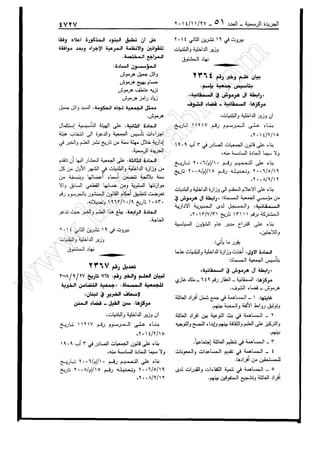 الجريدة الرسمية - العدد ٥١ - ٢٠١٤/١١/٢٧
٤٧٢٧
بيروت في ١٩ تشرين الثاني ٢٠١٤
وزير الداخلية والبلديات
نهاد المشنوق
بيان علم وخبر رقم ٢٣٦٤
بتأسيس جمعية باسم:
«رابطة آل هرموش في السمقانية»
مركزها: السمقانية - قضاء الشوف
ان وزير الداخلية والبلديات،
بناء على المرسوم رقم ١١٢١٧ تاريخ
٢٠١٤/٢/١٥،
بناء على قانون الجمعيات الصادر في ٣ آب ١٩٠٩
ولا سيما المادة السادسة منه،
بناء على التعميم رقم ١٠/إم/٢٠٠٦ تاريخ
٢٠٠٦/٥/١٩ وتعديله رقم ١٥/إم/٢٠٠٨ تاريخ
بناء على الاعلام المقدم إلى وزارة الداخلية والبلديات
من مؤسسي الجمعية المسماة: «رابطة آل هرموش في
السمقانية» والمسجل لدى المديرية الادارية
المشتركة برقم ١٣١١١ تاريخ ٢٠١٣/٧/٣١،
بناء على اقتراح مدير عام الشؤون السياسية
واللاجئين،
يقرر ما يأتي:
المادة الاولى: أخذت وزارة الداخلية والبلديات علما
بتأسيس الجمعية المسماة:
«رابطة آل هرموش في السمقانية»
مركزها: السمقانية - العقار رقم ٦٤٩ - ملك غازي
هرموش - قضاء الشوف.
غايتها: ١ - المساهمة في جمع شمل أفراد العائلة
وتوثيق روابط الألفة والمحبة بينهم.
٢ - المساهمة في بث التوعية بين افراد العائلة
والتركيز على العلم والثقافة بينهم وإبداء النصح والتوجيه
بينهم.
٣ - المساهمة في تنظيم العائلة إجتماعياً.
٤ - المساهمة في تقديم المساعدات والمعونات
للمستحقين من أفرادها.
٥ - المساهمة في تنمية الكفاءات والقدرات لدى
أفراد العائلة وتشجيع المتفوقين بينهم.
على أن تطبق البنود المذكورة اعلاه وفقا
للقوانين والأنظمة المرعية الإجراء وبعد موافقة
المراجع المختصة.
المؤسسون السادة:
وائل جميل هرموش
حسام بهيج هرموش
نزيه عاطف هرموش
زياد رامز هرموش
ممثل الجمعية تجاه الحكومة: السيد وائل جميل
هرموش.
المادة الثانية: على الهيئة التأسيسية إستكمال
اجراءات تأسيس الجمعية والدعوة الى انتخاب هيئة
إدارية خلال مهلة سنة من تاريخ نشر العلم والخبر في
الجريدة الرسمية.
المادة الثالثة: على الجمعية المشار اليها أن تتقدم
من وزارة الداخلية والبلديات في الشهر الأول من كل
سنة بلائحة تتضمن أسماء أعضائها ونسخة عن
موازنتها السنوية وعن حسابها القطعي السابق وإلا
تعرضت لتطبيق أحكام القانون المنشور بالمرسوم رقم
١٠٨٣٠ تاريخ ١٩٦٢/١٠/٩ وتعديلاته.
المادة الرابعة: يبلغ هذا العلم والخبر حيث تدعو
الحاجة.
بيروت في ١٩ تشرين الثاني ٢٠١٤
وزير الداخلية والبلديات
نهاد المشنوق
تعديل رقم ٢٣٦٧
مركزها: عين الفيل - قضاء المتن
ان وزير الداخلية والبلديات،
بناء على المرسوم رقم ١١٢١٧ تاريخ
٢٠١٤/٢/١٥،
بناء على قانون الجمعيات الصادر في ٣ آب ١٩٠٩
ولا سيما المادة السادسة منه،
بناء على التعميم رقم ١٠/إم/٢٠٠٦ تاريخ
٢٠٠٦/٥/١٩ وتعديله رقم ١٥/إم/٢٠٠٨ تاريخ